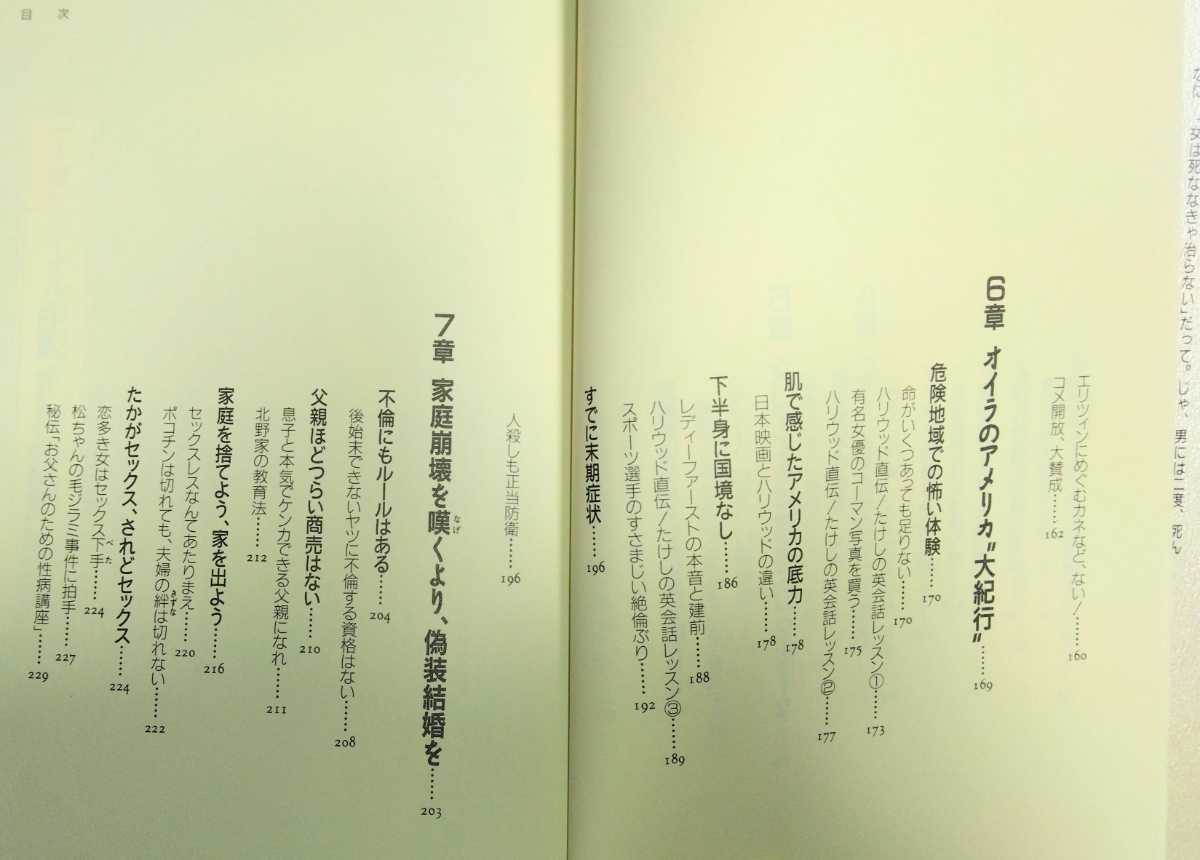 女は死ななきゃ治らない」だって。じゃ、男には二度、死ん
エリツィンにめぐむカネなど、ない!……160
コメ開放、大賛成……162
6章 オイラのアメリカ〝大紀行〟……169
危険地域での怖い体験……170
命がいくつあっても足りない……170
ハリウッド直伝!たけしの英会話レッスン①……173
有名女優のコーマン写真を買う……175
ハリウッド直伝!たけしの英会話レッスン②……177
肌で感じたアメリカの底力……178
日本映画とハリウッドの違い……178
下半身に国境なし……186
レディーファーストの本音と建前……188
ハリウッド直伝!たけしの英会話レッスン③……189
スポーツ選手のすさまじい絶倫ぶり……192
すでに末期症状……196
人殺しも正当防衛……196
7章 家庭崩壊を嘆くより、偽装結婚を……203
なげ
不倫にもルールはある……204
後始末できないヤツに不倫する資格はない……208
父親ほどつらい商売はない……210
息子と本気でケンカできる父親になれ……211
北野家の教育法……212
家庭を捨てよう、家を出よう……216
セックスレスなんてあたりまえ……220
ポコチンは切れても、夫婦の絆は切れない……222
きずな
たかがセックス、されどセックス……224
恋多き女はセックス下手……224
べた
松ちゃんの毛ジラミ事件に拍手……227
秘伝「お父さんのための性病講座」……229
目次